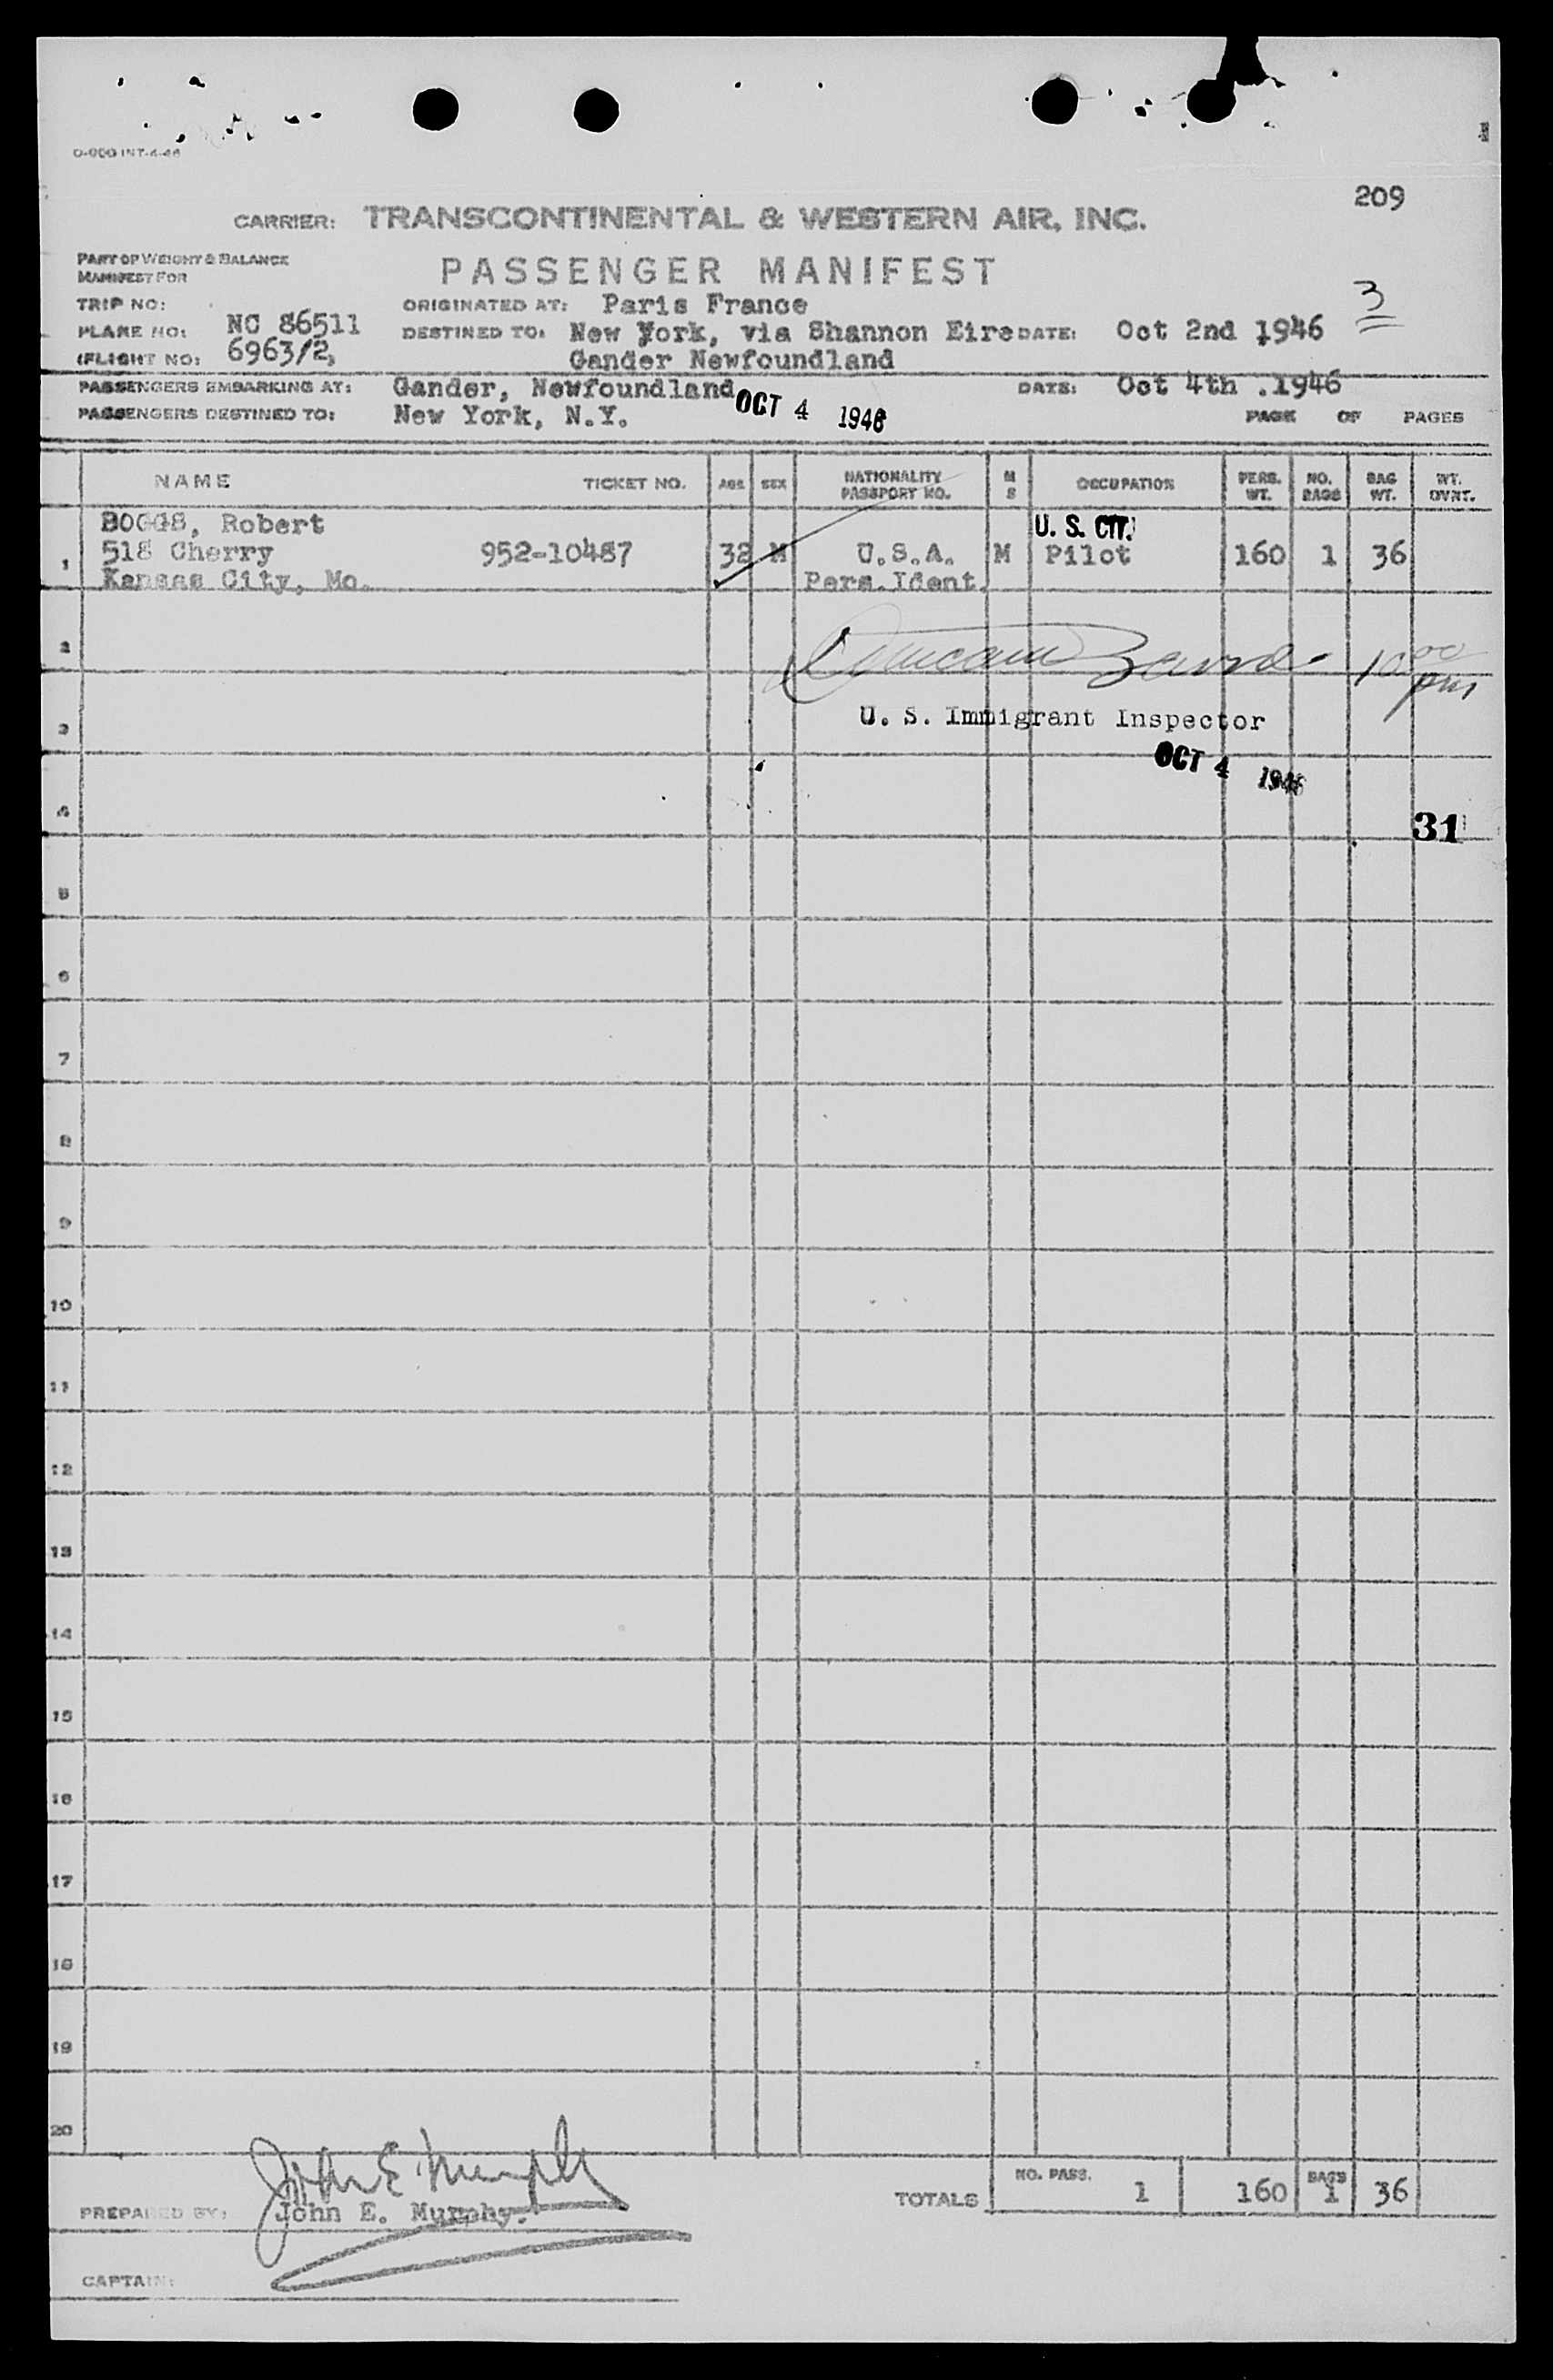 O-900 INT-4-46
209
CARRIER: TRANSCONTINENTAL & WESTERN AIR, INC.
PART OF WEIGHT & BALANCE
MANIFEST FOR
PASSENGER MANIFEST
3
TRIP NO:
ORIGINATED AT: Paris France
PLANE NO: NC 86511
DESTINED TO: New York, via Shannon Eire DATE: Oct 2nd 1946
FLIGHT NO: 6963/2,
Gander Newfoundland
PASSENGERS EMBARKING AT: Gander, Newfoundland DATE: Oct 4th .1946
OCT 4 1946
PASSENGERS DESTINED TO: New York, N.Y. PAGE OF PAGES
NAME TICKET NO. AGE SEX NATIONALITY PASSPORT NO. M S OCCUPATION PERS. WT. NO. BAGS BAG WT. WT. OVRT.
BOGGS, Robert U. S. CIT.
1 518 Cherry 952-10487 32 M U.S.A. M Pilot 160 1 36
Kansas City, Mo. Pers. Ident.
2
10 00 pm
U. S. Immigrant Inspector
3
OCT 4 1946
4
31
5
6
7
8
9
10
11
12
13
14
15
16
17
18
19
20
TOTALS NO. PASS. 1 160 BAGS 1 36
John E. Murphy
PREPARED BY: John E. Murphy.
CAPTAIN: